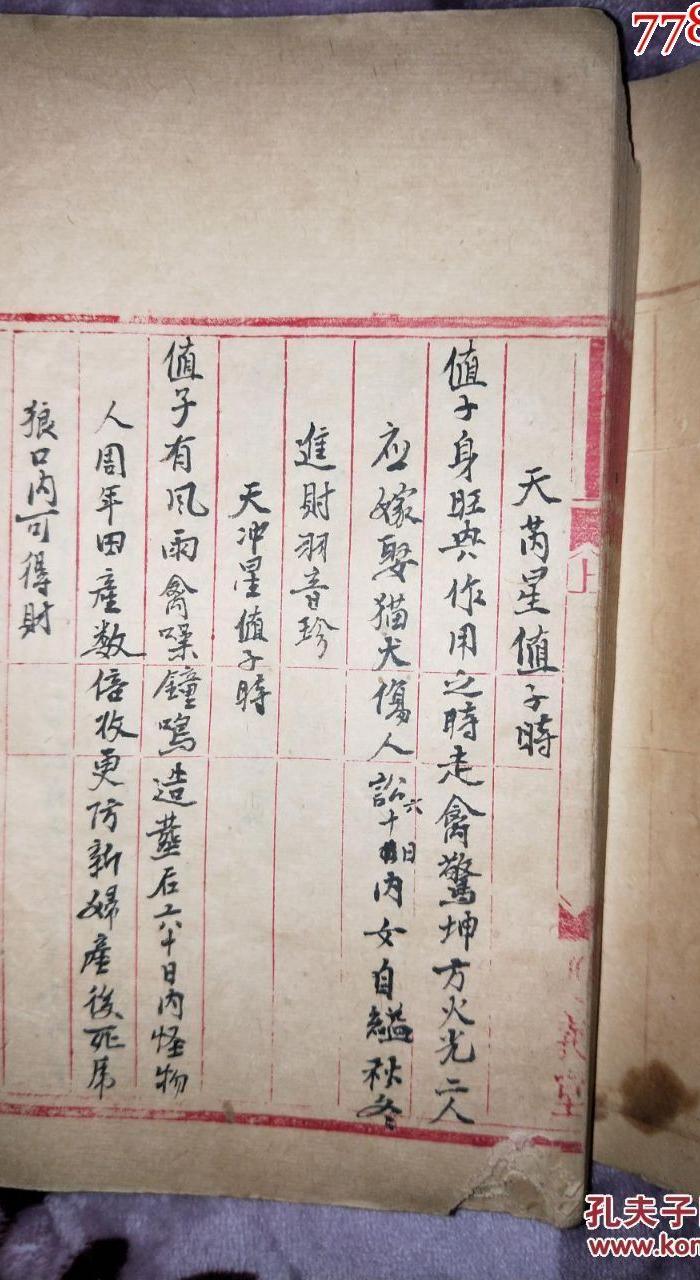 天芮星值子時
值子身旺與作用之時走禽驚坤方火光二人
应嫁娶猫犬傷人訟六十日内女自縊秋冬
進財羽音珍
天冲星值子時
值子有风雨禽噪鐘鳴造塟后六十日内怪物
人周年田產数倍收更防新婦產後死馬
狼口内可得財
上
義堂
778
孔夫子
www.kon